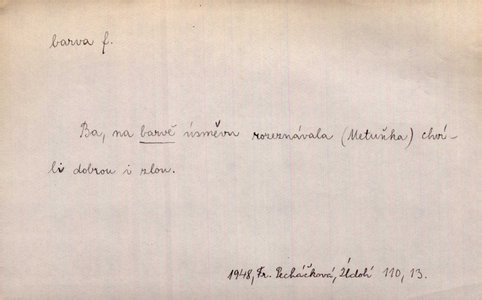 barva f.
Ba, na barvě úsměvu rozeznávala (Metuňka) chví-
li dobrou i zlou.
1948, Fr. Pecháčková, Údolí 110, 13.